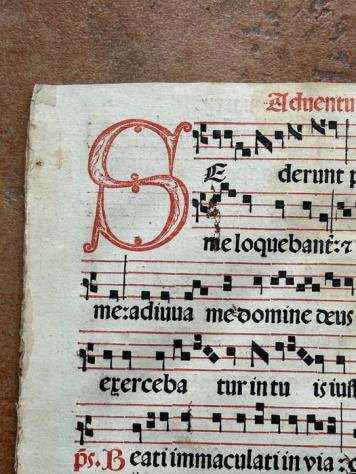 Aduentu
S E derunt p
me loquebant̃: ⁊
me: adiuua me domine deus
exerceba tur in tu is iust
p̃s. B eati immaculati in via ⁊